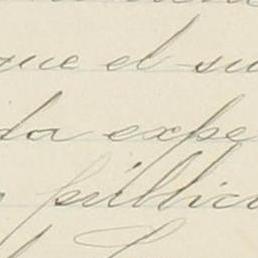 que el su
da expe
pública